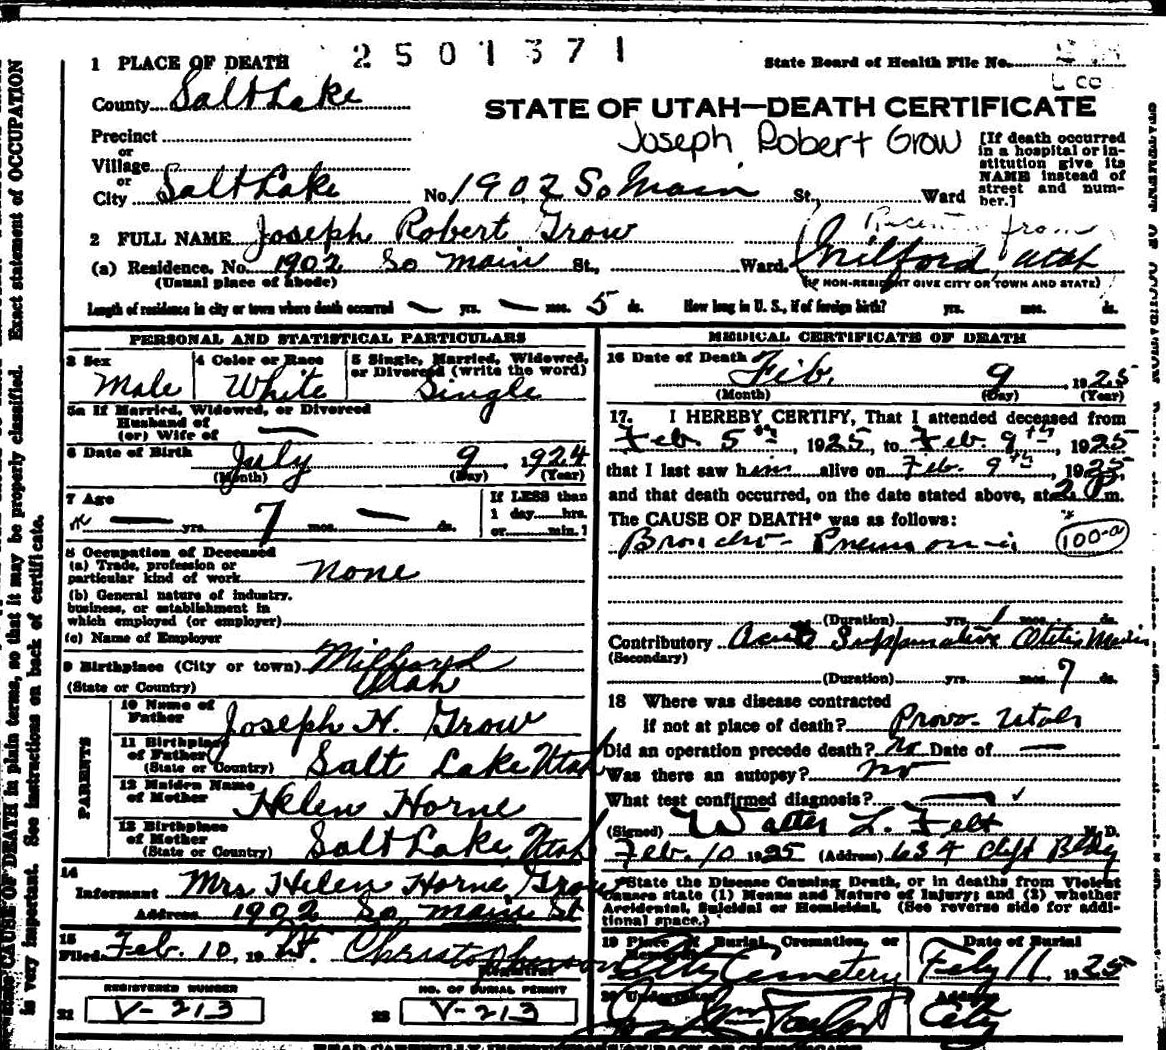 2501371
1 PLACE OF DEATH
State Board of Health File No.
County Salt Lake
STATE OF UTAH—DEATH CERTIFICATE
Precinct
Joseph Robert Grow
or
Village
or
City Salt Lake No. 1902 So Main St., Ward
[If death occurred
in a hospital or in-
stitution give its
NAME instead of
street and num-
ber.]
2 FULL NAME Joseph Robert Grow
Recent from
(a) Residence. No. 1902 So Main St., Ward. Milford, Utah
(Usual place of abode)
(IF NON-RESIDENT GIVE CITY OR TOWN AND STATE)
Length of residence in city or town where death occurred — yrs. — mos. 5 ds. How long in U. S., if of foreign birth? yrs. mos. ds.
PERSONAL AND STATISTICAL PARTICULARS
3 Sex
Male
4 Color or Race
White
5 Single, Married, Widowed,
or Divorced (write the word)
Single
5a If Married, Widowed, or Divorced
Husband of
(or) Wife of —
6 Date of Birth
July 9, 1924
(Month) (Day) (Year)
7 Age
— yrs. 7 mos. — ds.
If LESS than
1 day....hrs.
or....min.]
8 Occupation of Deceased
(a) Trade, profession or
particular kind of work none
(b) General nature of industry,
business, or establishment in
which employed (or employer)
(c) Name of Employer
9 Birthplace (City or town) Milford
(State or Country) Utah
PARENTS
10 Name of
Father Joseph H. Grow
11 Birthplace
of Father
(State or Country) Salt Lake Utah
12 Maiden Name
of Mother Helen Horne
13 Birthplace of
Mother
(State or Country) Salt Lake, Utah
14
Informant Mrs Helen Horne Grow
Address 1902 So. Main St
15
Filed Feb. 10, 19 Christopherson
Registrar
REGISTERED NUMBER
21 V-213
NO. OF BURIAL PERMIT
22 V-213
MEDICAL CERTIFICATE OF DEATH
16 Date of Death
Feb. 9, 1925
(Month) (Day) (Year)
17. I HEREBY CERTIFY, That I attended deceased from
Feb. 5th, 1925, to Feb. 9th, 1925
that I last saw him alive on Feb. 9th, 1925
and that death occurred, on the date stated above, at 2 P. m.
The CAUSE OF DEATH* was as follows:
Broncho-Pneumonia 100-a
(Duration) yrs. 1 mos. ds.
Contributory Acute Suppurative Otitis Media
(Secondary)
(Duration) yrs. mos. 7 ds.
18 Where was disease contracted
if not at place of death? Provo-Utah
Did an operation precede death? no Date of —
Was there an autopsy? no
What test confirmed diagnosis? —
(Signed) Walter L. Felt M. D.
Feb. 10 1925 (Address) 634 Clift Bldg
*State the Disease Causing Death, or in deaths from Violent
Causes state (1) Means and Nature of Injury; and (2) whether
Accidental, Suicidal or Homicidal. (See reverse side for addi-
tional space.)
19 Place of Burial, Cremation, or
Removal
City Cemetery
Date of Burial
Feby 11 1925
20 Undertaker
Taylor
Address
City
CAUSE OF DEATH in plain terms, so that it may be properly classified. Exact statement of OCCUPATION
is very important. See instructions on back of certificate.